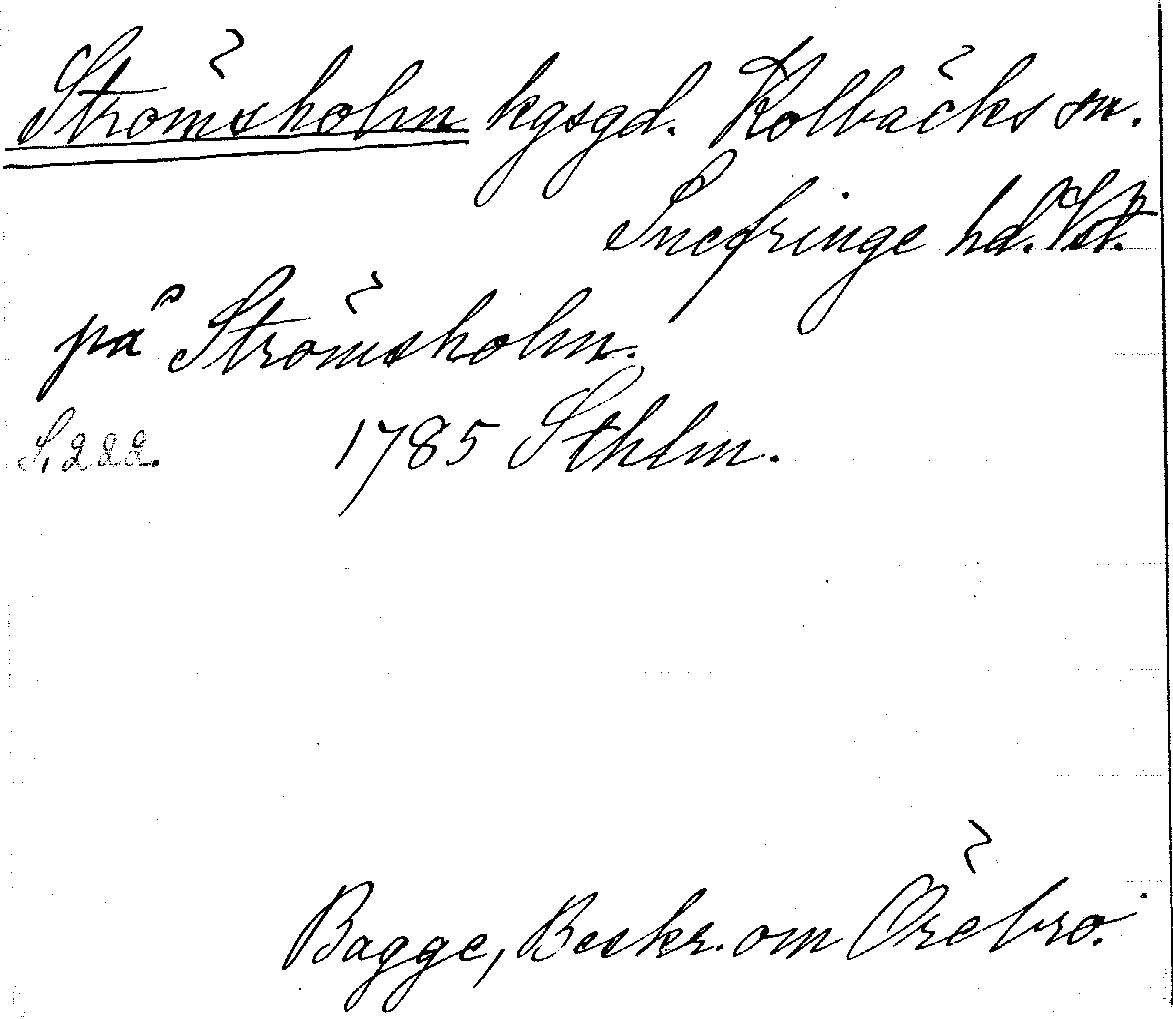 Strömsholm kgsgd. Kolbäcks sn.
Snefringe hd. Vstm.
på Strömsholm.
S. 222. 1785 Sthlm.
Bagge, Beskr. om Örebro.